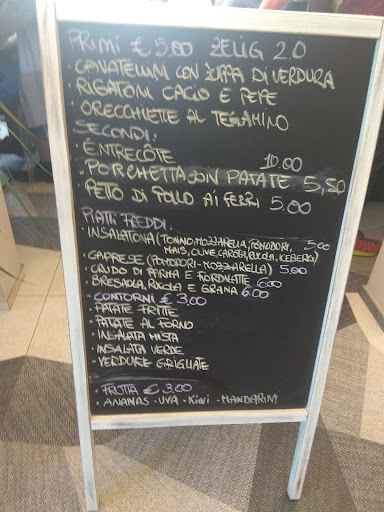 PRIMI € 5,00 ZELIG 2.0
· CAVATELLINI CON ZUPPA DI VERDURA
· RIGATONI CACIO E PEPE
· ORECCHIETTE AL TEGAMINO
SECONDI:
· ENTRECÔTE 10.00
· PORCHETTA CON PATATE 5,50
· PETTO DI POLLO AI FERRI 5,00
PIATTI FREDDI:
· INSALATONA (TONNO, MOZZARELLA, POMODORI, 5,00
MAIS, OLIVE, CAROTA, RUCOLA, ICEBERG)
· CAPRESE (POMODORI - MOZZARELLA) 5,00
· CRUDO DI PARMA E FIORDILATTE 6.00
· BRESAOLA, RUCOLA E GRANA 6.00
CONTORNI € 3,00
· PATATE FRITTE
· PATATE AL FORNO
· INSALATA MISTA
· INSALATA VERDE
· VERDURE GRIGLIATE
· FRUTTA € 3,00
· ANANAS · UVA · KIWI · MANDARINI